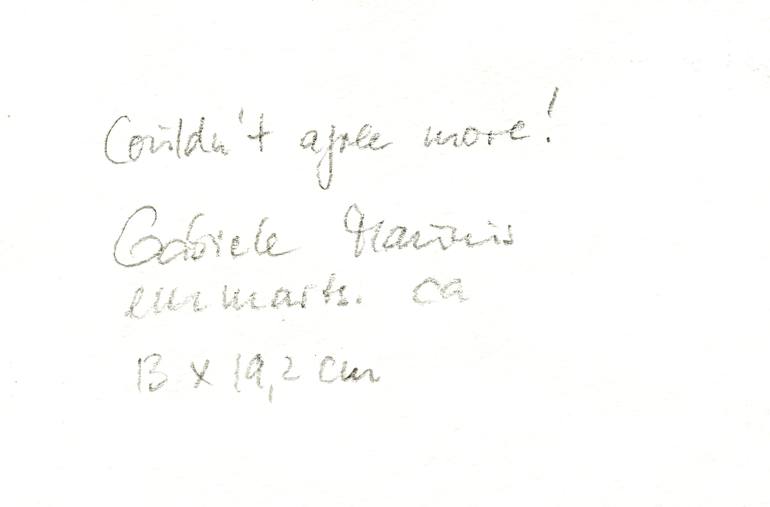 Couldn't agree more!
Gabriele
ca
13 x 19,2 cm